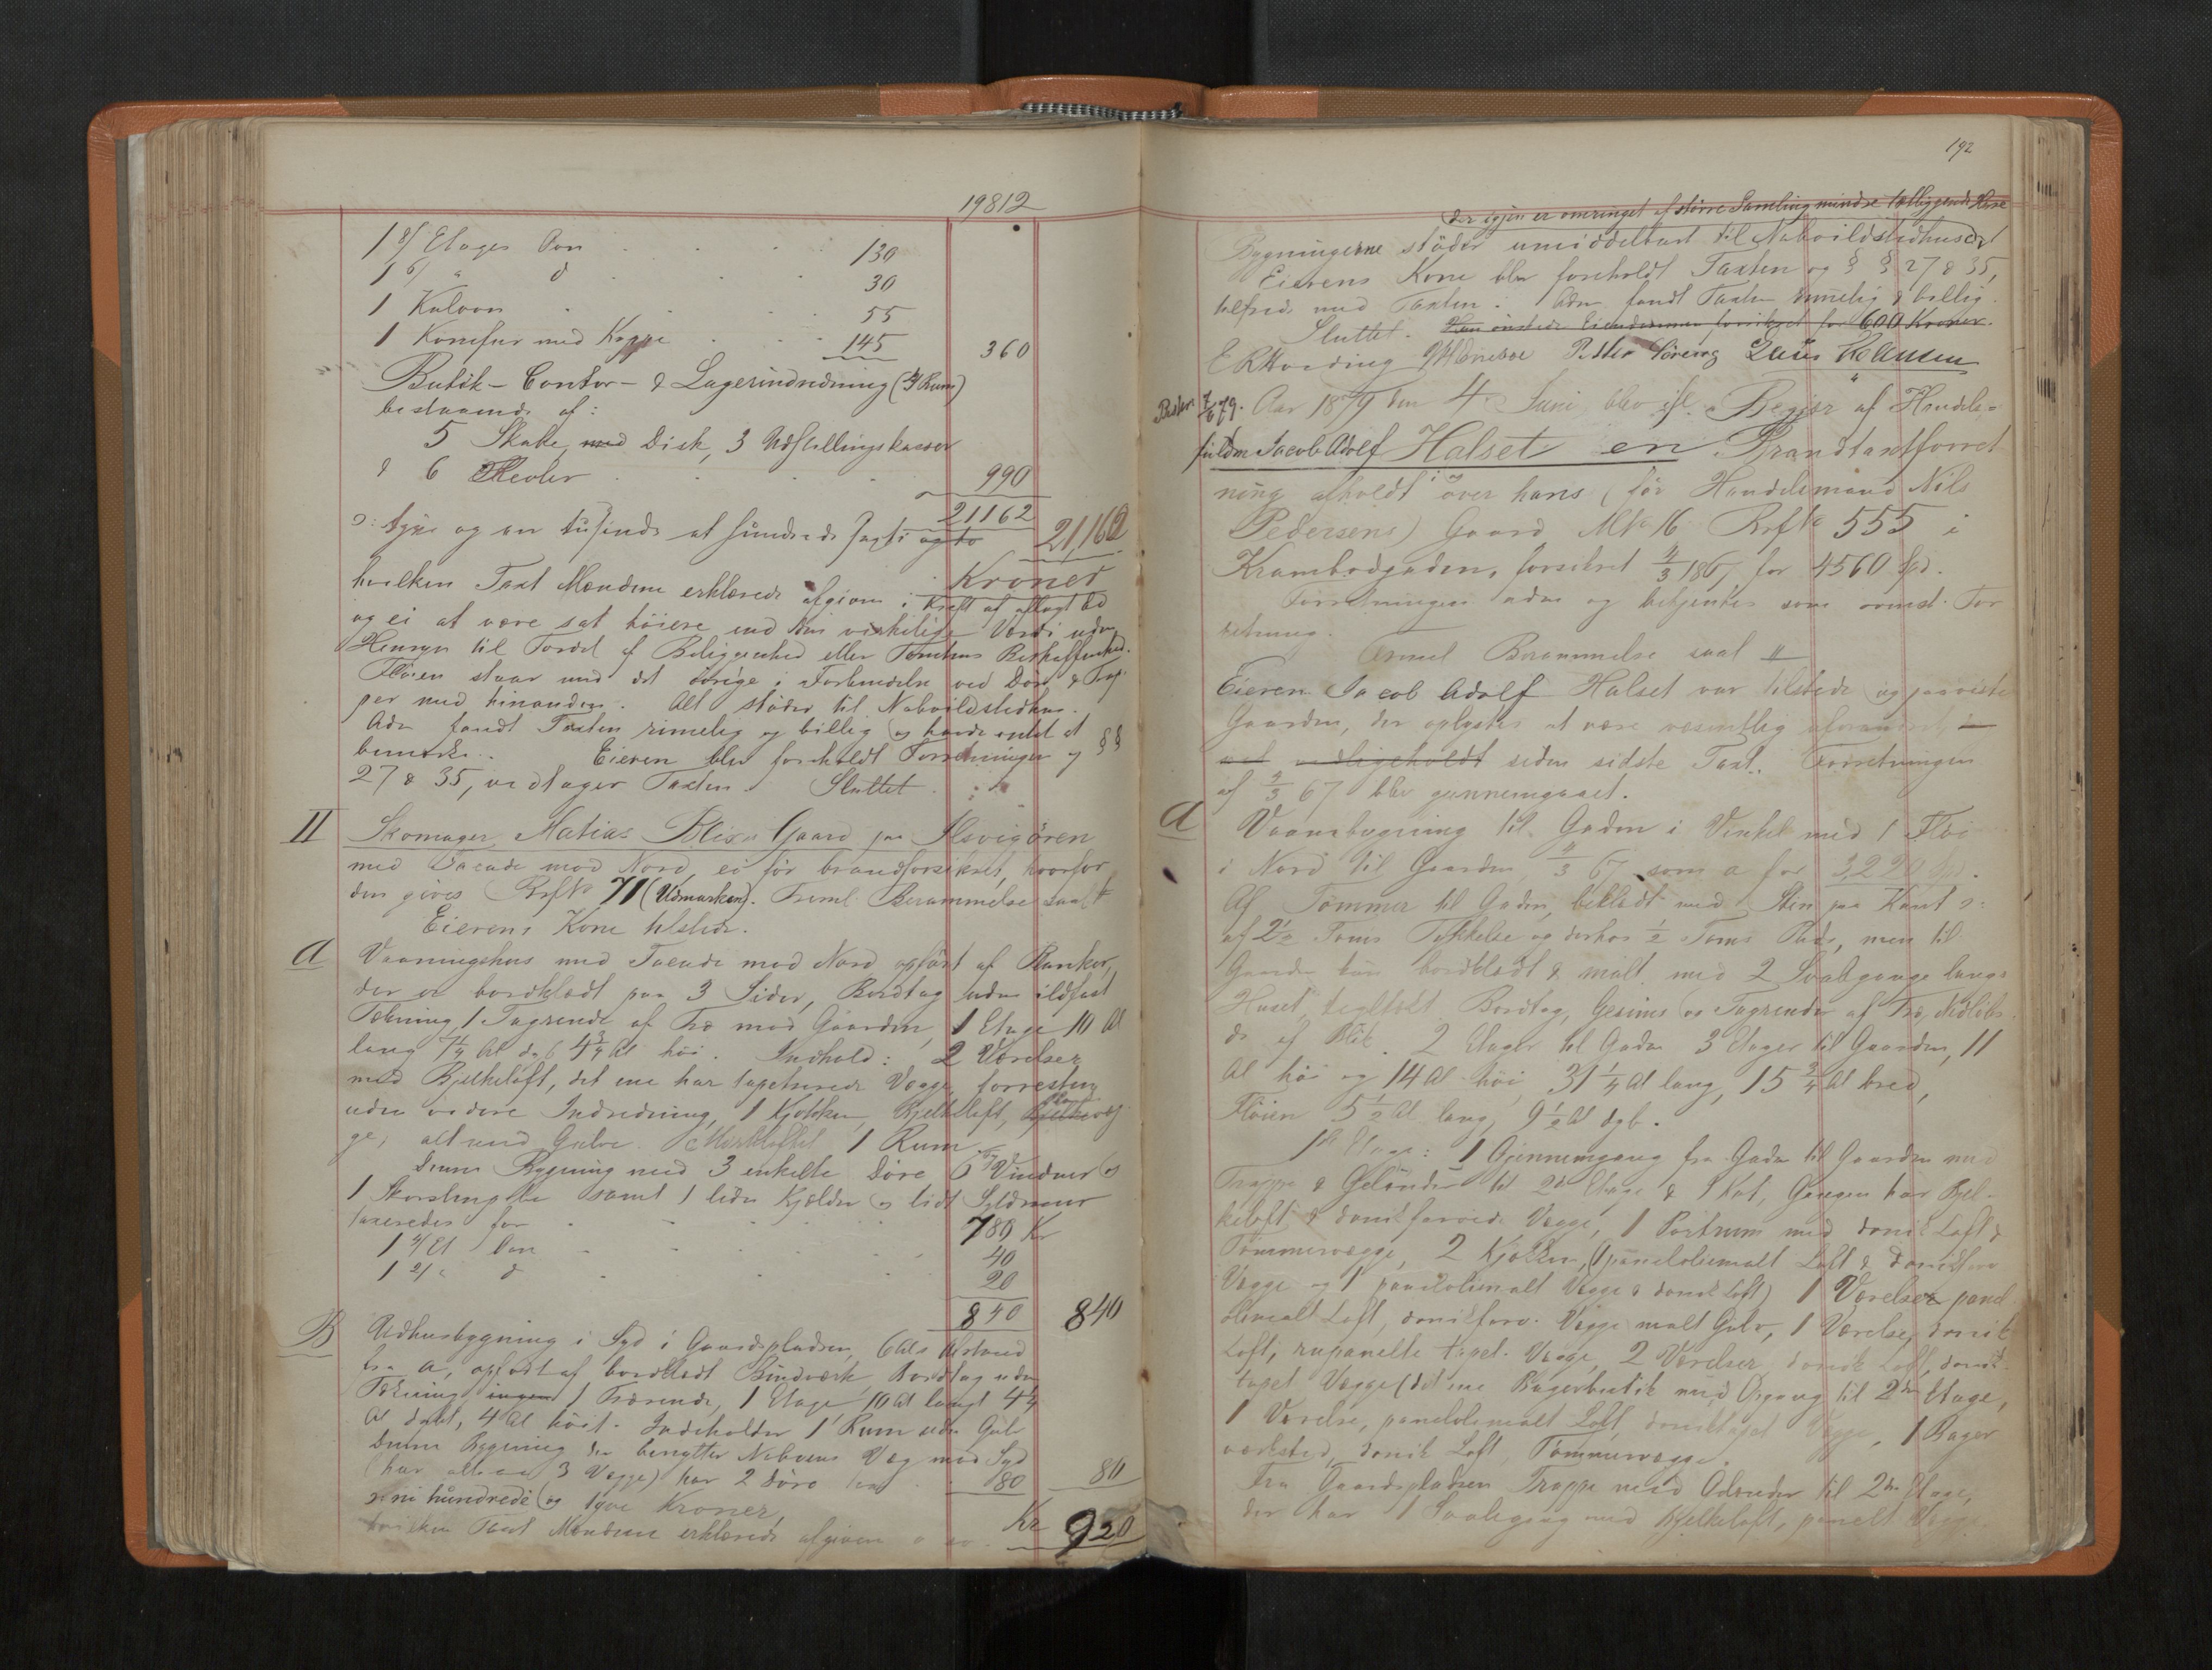 19812
1 8/ Etages Ovn 130
1 6/ " d 30
1 Kulovn 55
1 Komfur med Kappe 145 360
Butik- Contor- & Lagerindredning (4 Rum)
bestaaende af:
5 Skabe, med Disk, 3 Udstillingskasser
& 6 Reoler 990
21162
ɔ: tyve og en tusinde et hundrede sexti og to 21,162
Kroner
hvilken Taxt Mændene erklærede afgiven i Kraft af aflagt Ed
og ei at være sat høiere end den virkelige Værdi uden
Hensyn til Fordel af Beliggenhed eller Tomtens Beskaffenhed.
Fløien staar med det øvrige i Forbindelse ved Døre & Trap
per med hinanden. Alt støder til Naboildstedhus.
Adm fandt Taxten rimelig og billig og havde intet at
bemærke. Eieren blev foreholdt Forretningen og §§
27 & 35, vedtager Taxten. Sluttet.
II Skomager Matias Blixs Gaard paa Ilsvigøren
med Facade mod Nord, ei før brandforsikret, hvorfor
den gives Brf No 71 (Udmarken). Freml. Berammelse saal.
Eierens Kone tilstede.
A Vaaningshus med Facade mod Nord opført af Planker,
der er bordklædt paa 3 Sider, Bordtag uden ildfast
Tækning, 1 Tagrende af Træ mod Gaarden, 1 Etage 10 Al
lang 7 1/4 Al dyb 4 3/4 Al høi. Indhold: 2 Værelser
med Bjelkeloft, det ene har tapetserede Vægge, forresten
uden videre Indredning, 1 Kjøkken, Bjelkeloft, Bjelkevæg
ge, alt med Gulve. Mørkloftet 1 Rum
Denne Bygning med 3 enkelte Døre 6 Vinduer og
1 Skorstenspibe samt 1 liden Kjælder og lidt Syldmuur
taxeredes for 780 Kr
1 4/ Et Ovn 40
1 2/ " d 20
840 840
B Udhusbygning i Syd i Gaardspladsen, 6 Als Afstand
fra A, opført af bordklædt Bindværk Bordtag uden
Tækning ingen 1 Trærende, 1 Etage 10 Al langt 4 1/4
Al dybt, 4 Al høit. Indeholder 1 Rum uden Gulv
Denne Bygning der benytter Naboens Væg mod Syd
(har altsaa 3 Vægge) har 2 Døre 80 80
ɔ: ni hundrede og tyve Kroner, Kr 920
hvilken Taxt Mændene erklærede afgiven o sv.
192
der igjen er omringet af større Samling mindre tætliggende Huse
Bygningerne støder umiddelbart til Naboildstedhuset
Eierens Kone blev foreholdt Taxten og §§ 27 & 35,
tilfreds med Taxten. Adm. fandt Taxten rimelig & billig.
Sluttet. Hun ønskede Eiendommen forsikret for 600 Kroner.
Peder
Aar 1879 den 4 Juni blev efl. Begjær af Handels-
fuldm Jacob Adolf Halset en Brandtaxtforret
ning afholdt over hans (før Handelsmand Nils
Pedersens) Gaard Mtr 16 Brf No 555 i
Krambodgaden, forsikret 4/3 1867 for 4560 Spd.
Forretningen adm og betjentes som ovenst. For
retning.
Freml Berammelse saal
Eieren Jacob Adolf Halset var tilstede og paaviste
Gaarden, der oplystes at være væsentlig uforandret
vel vedligeholdt siden sidste Taxt. Forretningen
af 4/3 67 blev gjennemgaaet.
A Vaanebygning til Gaden i Vinkel med 1 Fløi
i Nord til Gaarden 4/3 67 som a for 3,220 Spd.
Af Tømmer til Gaden, beklædt med Sten paa Kant ɔ:
af 2 1/2 Toms Tykkelse og derhos 1/2 Toms Puds, men til
Gaarden kun bordklædt & malt, med 2 Svalegange langs
Huset, teglhædt Bordtag, Gesims og Tagrender af Træ, Nedløbs
dr af Blik. 2 Etager til Gaden 3 Etager til Gaarden, 11
Al høi og 14 Al høi 31 1/4 Al lang, 15 3/4 Al bred,
Fløien 5 1/2 Al lang, 9 1/2 Al dyb.
1ste Etage: 1 Gjennemgang fra Gaden til Gaarden med
Trappe & Gelænder til 2den Etage & 1 Kot, Gangen har Bjel-
keloft & donikfarvede Vægge, 1 Portrum med donik Loft &
Tømmervægge, 2 Kjøkken, (1 paneloliemalt Loft & donikfarv
Vægge og 1 paneloliemalt Vægge & donik Loft) 1 Værelse panel
oliemalt Loft, donikfarv. Vægge malt Gulv, 1 Værelse, donik
Loft, rupanelte tapet. Vægge, 2 Værelser donik Loft, donik
tapet Vægge (det ene Bagerbutik med Opgang til 2den Etage,
1 Værelse, paneloliemalt Loft, doniktapet Vægge, 1 Bager
værksted, donik Loft, Tømmervægge.
Fra Gaardspladsen Trappe med Gelænder til 2den Etage,
der har 1 Svalegang med Bjelkeloft, panelt Vægge